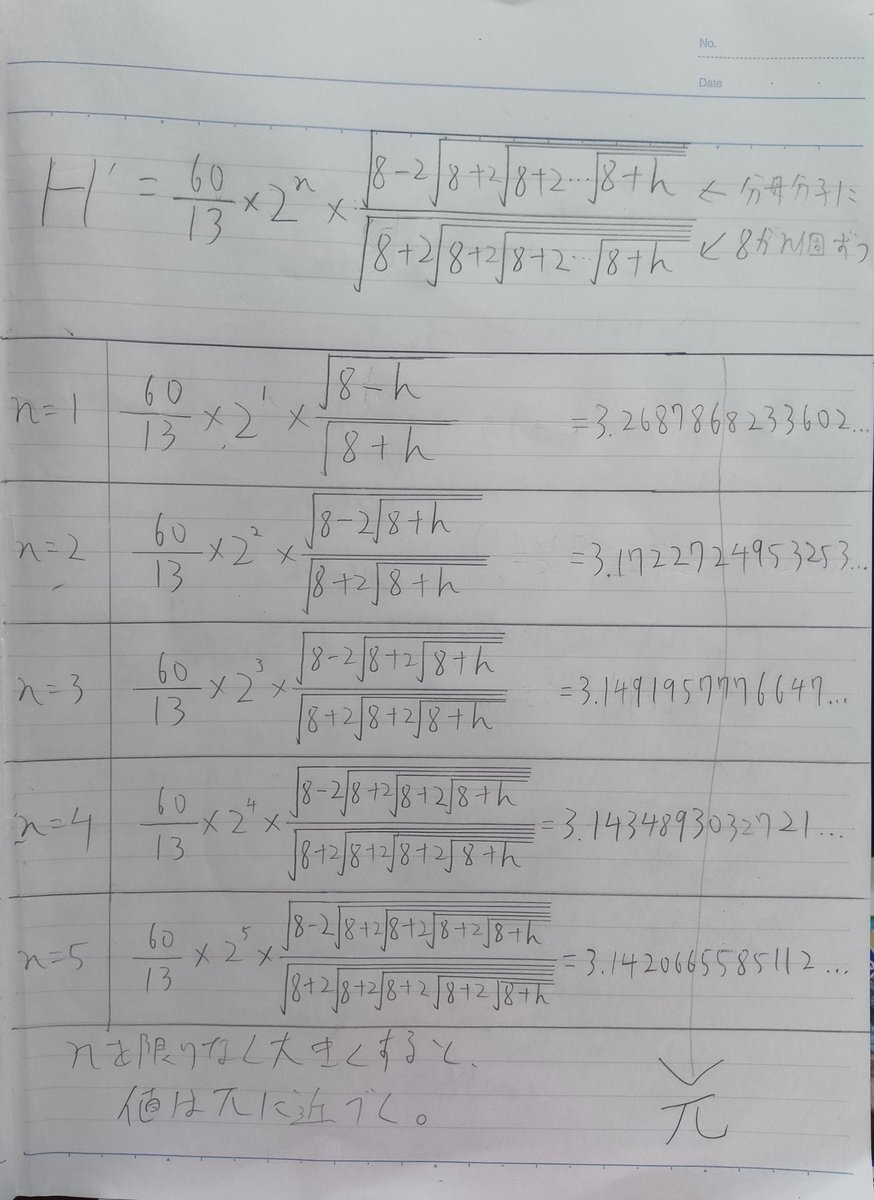 No.
Date
H' = 60/13 × 2^n × √(8-2√(8+2√(8+2…√(8+h)))) / √(8+2√(8+2√(8+2…√(8+h)))) ← 分母分子に
↙ 8がn個ずつ
n=1 60/13 × 2^1 × √(8-h) / √(8+h) =3.2687868233602…
n=2 60/13 × 2^2 × √(8-2√(8+h)) / √(8+2√(8+h)) =3.1722724953253…
n=3 60/13 × 2^3 × √(8-2√(8+2√(8+h))) / √(8+2√(8+2√(8+h))) =3.1491957776647…
n=4 60/13 × 2^4 × √(8-2√(8+2√(8+2√(8+h)))) / √(8+2√(8+2√(8+2√(8+h)))) =3.1434893032721…
n=5 60/13 × 2^5 × √(8-2√(8+2√(8+2√(8+2√(8+h))))) / √(8+2√(8+2√(8+2√(8+2√(8+h))))) =3.1420665585112…
nを限りなく大きくすると、
値はπに近づく。
π